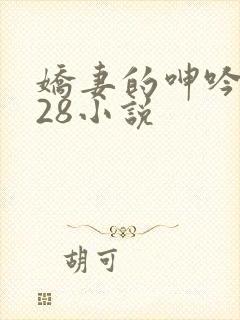 嬌妻的呻吟
28小説
胡可